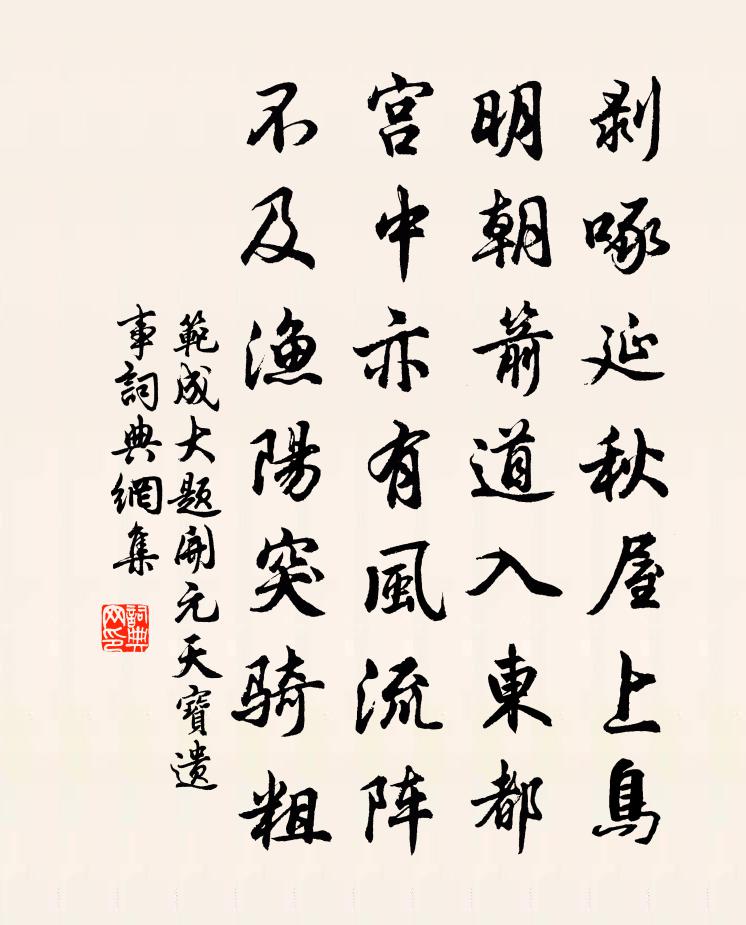 剥啄延秋屋上烏
明朝箭道入東都
宫中亦有風流阵
不及漁陽突骑粗
範成大题開元天寶遗
事詞典網集
詞典
网印